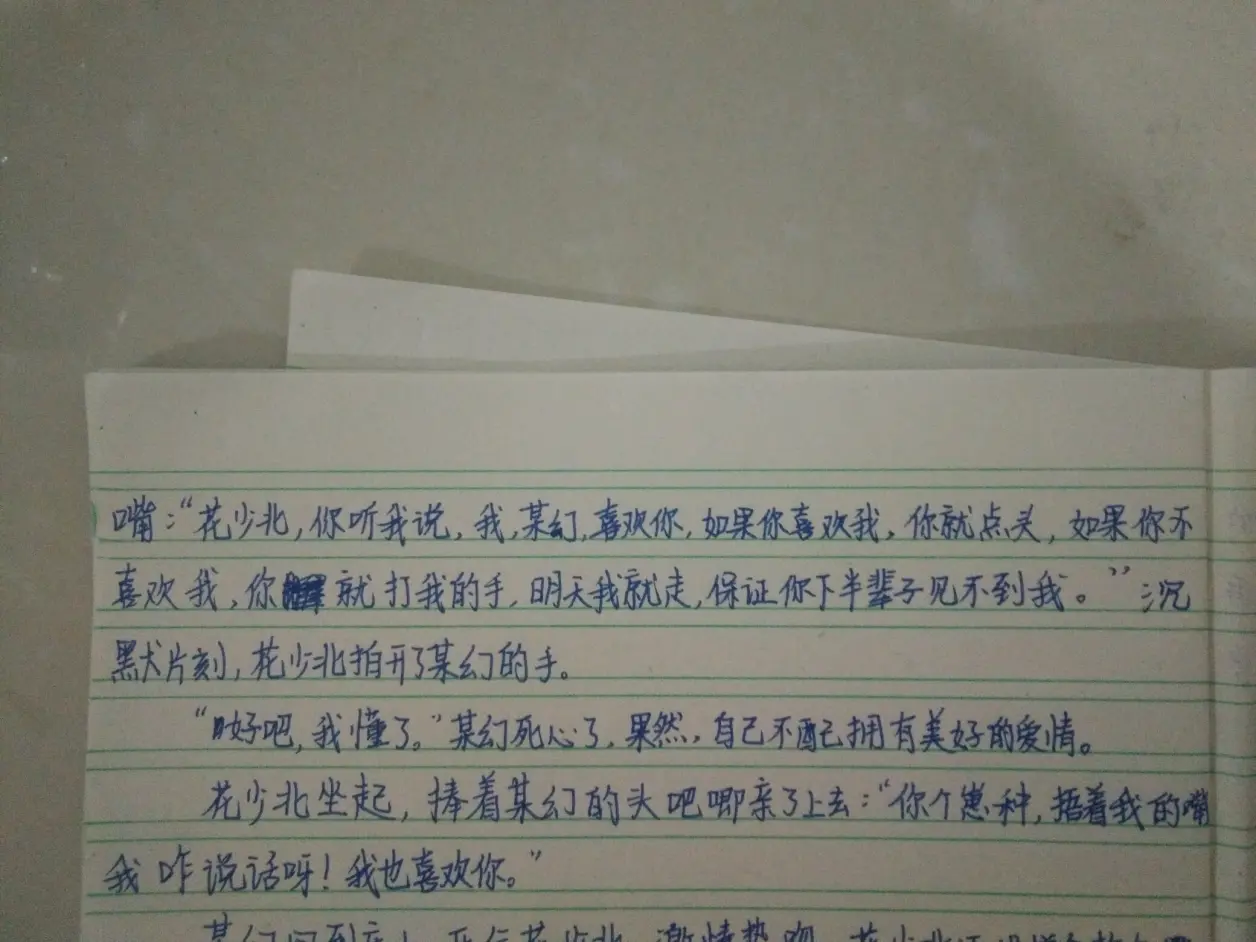 嘴:“花少北,你听我说,我,某幻,喜欢你,如果你喜欢我,你就点头,如果你不
喜欢我,你就打我的手,明天我就走,保证你下半辈子见不到我。”沉
默片刻,花少北拍开了某幻的手。
“好吧,我懂了。”某幻死心了,果然,自己不配拥有美好的爱情。
花少北坐起,捧着某幻的头吧唧亲了上去:“你个崽种,捂着我的嘴
我咋说话呀!我也喜欢你。”